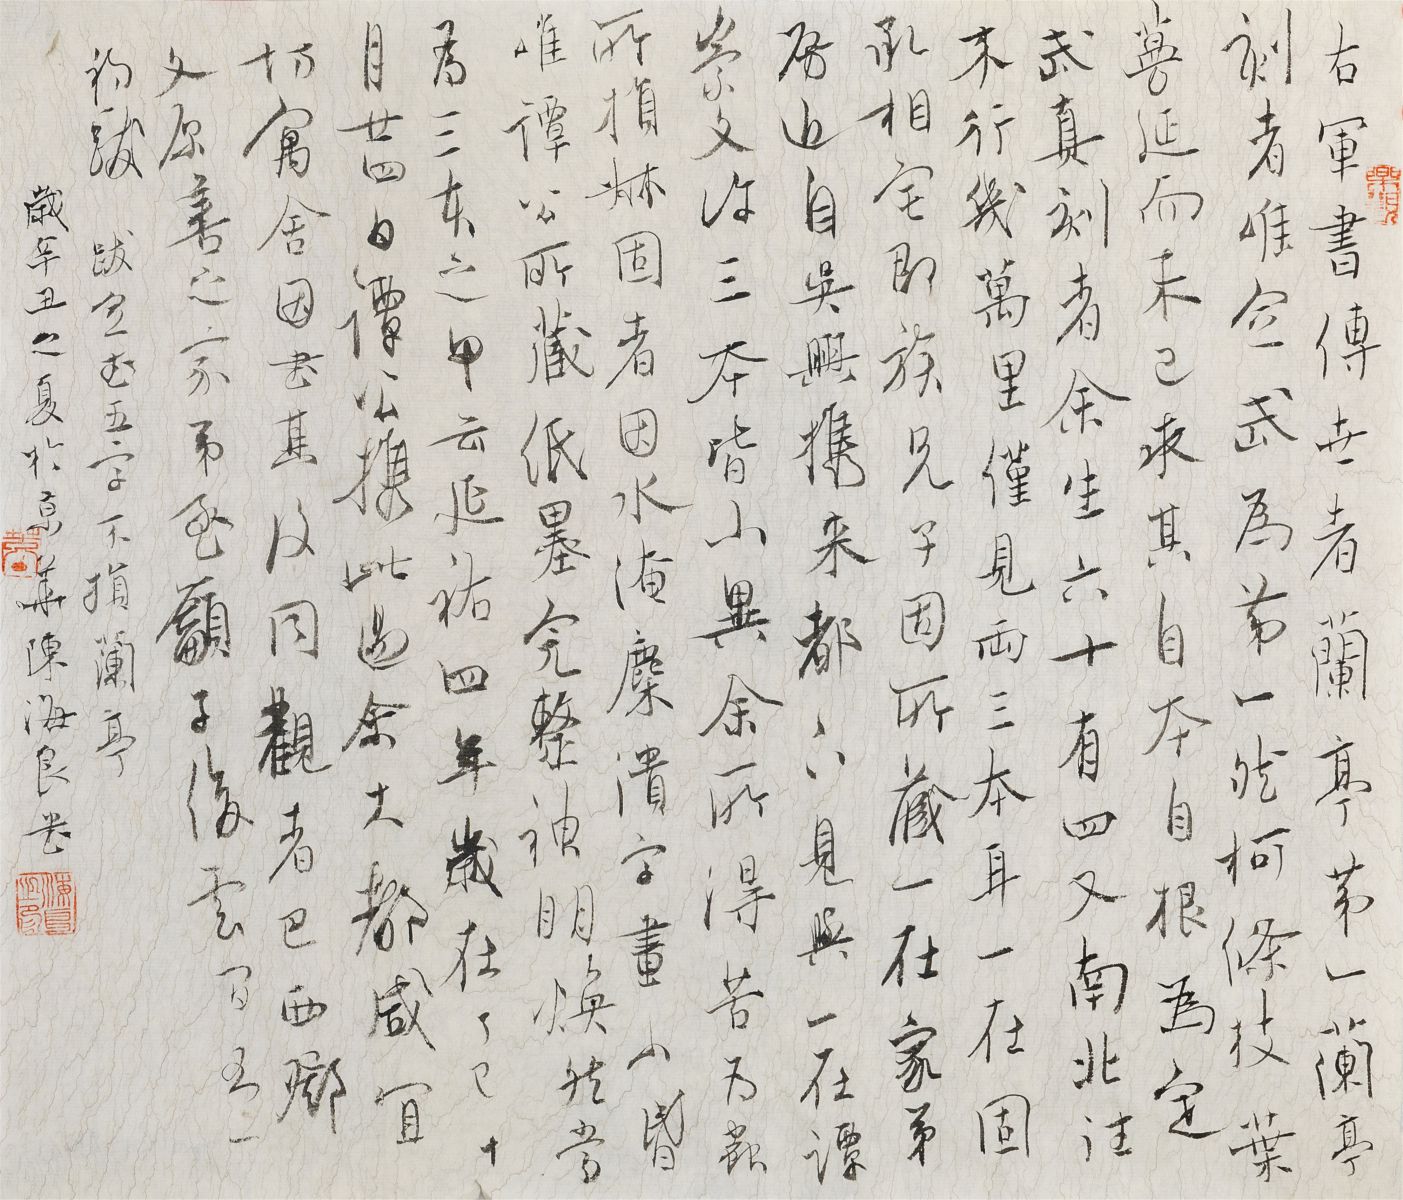 右軍書傳世者蘭亭第一蘭亭
刻者唯定武為第一然柯條枝葉
蔓延而未已求其自本自根為定
武真刻者余生六十有四又南北往
來行幾萬里僅見兩三本耳一在固
承相宅即族兄子因所藏一在家弟
處近自吳興携来都下見與一在譚
崇文許三本皆小異余所得苦為蠹
所損林固者因水淹麋潰字畫小昏
唯譚公所藏紙墨完整神明煥然當
為三本之甲云延祐四年歲在丁巳十
月廿四日譚公携此過余大都咸宜
坊寓舍因書其後同觀者巴西鄧
文原善之家弟孟頫子俊雲間
初跋 跋定武五字不損蘭亭
歲辛丑之夏於京華陳海良書